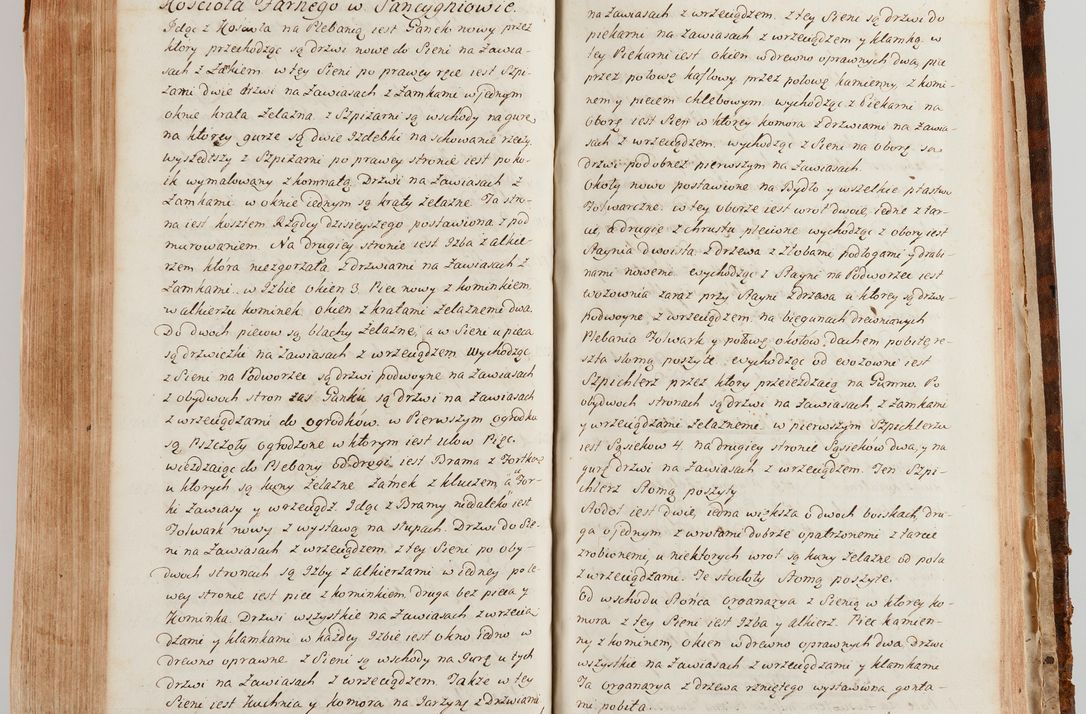 Kościoła Farnego w Sancygniowie.
Idąc z Kościoła na Plebanią iest Ganek nowy przez
ktory przechodząc są drzwi nowe do Sieni na Zawia-
sach z Zamkiem. w tęy Sieni po prawęy ręce iest Szpi-
żarni dwie drzwi na Zawiasach z Zamkami w jednym
oknie krata żelazna. z Szpiżarni są wschody na gurę
na ktorey gurze są dwie Izdebki na schowanie rzeczy.
wyszedłszy z Szpiżarni po prawey stronie iest poko-
ik wymalowany z komnatą. Drzwi na Zawiasach z
Zamkami w oknie iednym są kraty żelazne. Ta stro-
na iest kosztem Rządcy dzisieyszego postawiona z pod
murowaniem. Na drugiey stronie iest Izba z alkie-
rzem ktora niezgorzała z drzwiami na Zawiasach z
Zamkami. w Izbie okien 3. Piec nowy z kominkiem,
w alkierzu kominek okien z kratami żelaznemi dwa.
Do dwoch piecow są blachy żelazne, a w Sieni u pieca
są drzwiczki na Zawiasach z wrzeciądzem. Wychodząc
z Sieni na Podworzec są drzwi podwoyne na Zawiasach
z obydwoch stron zas Ganku są drzwi na Zawiasach
z wrzeciądzami do ogrodków. w Pierwszym ogrodku
są Pszczoły ogrodzone w ktorym iest ulow Pięc.
wieżdzaiąc do Plebany od drogi iest Brama z Fortką
u ktorych są kuny żelazne Zamek z kluczem, a u For-
ki Zawiasy y wrzeciądz. Idąc z Bramy niedaleko iest
Folwark nowy z wystawą na słupach. Drzwi do Sie-
ni na Zawiasach z wrzeciądzem z tęy Sieni po oby-
dwoch stronach są Izby z alkierzami w iedney po le-
wey stronie iest piec z kominkiem, druga bez pieca y
Kominka. Drzwi wszystkie na Zawiasach z wrzecią
dzami y klamkami w każdey Izbie iest okno iedno w
drewno oprawne z Sieni są wschody na Gurę u tych
drzwi na Zawiasach z wrzeciądzem. Także w tęy
Sieni iest Kuchnia y komora na Jarzynę z Drzwiami,
na Zawiasach z wrzeciądzem. z tęy Sieni są drzwi do
piekarni na Zawiasach z wrzeciądzem y klamką. w
tey Piekarni iest okien w drewno oprawnych dwa, piec
przez połowę kaflowy przez połowę kamienny, z komi-
nem y piecem chlebowym. wychodząc z Piekarni na
oborę iest Sień w ktorey komora z drzwiami na Zawia-
sach z wrzeciądzem. wychodząc z Sieni na oborę są
drzwi podobneż pierwszym na Zawiasach.
Okoły nowo postawione na Bydło y wszelkie ptastwo
Folwarczne. w tey oborze iest wrot dwoie, iedne z tar-
cic, a drugie z chrustu plecione wychodząc z obory iest
Staynia dwoista z drzewa z Złobami podłogami y drabi-
nami nowemi. wychodząc z Stayni na Podworzec iest
wozownia zaraz przy Stayni z drzewa u ktorey są drzwi
podwoyne z wrzeciądzem na biegunach drewnianych
Plebania Folwark y połowę okołów, dachem pobite, re-
szta słomą poszyte. wychodząc od wozowne iest
Szpichlerz przez ktory przeieżdzaią na Gumno. Po
obydwoch stronach są drzwi na Zawiasach z Zamkami
y wrzeciądzami żelaznemi. w pierwszym Szpichlerzu
iest Sąsieków 4. na drugiey stronie Sąsieków dwa, y na
gurę drzwi na Zawiasach z wrzeciądzem. Ten Szpi-
chlerz słomą poszyty.
Stodół iest dwie, iedna większa o dwoch boiskach, dru-
ga o jednym z wrotami dobrze opatrzonemi z tarcic
zrobionemi, u niektorych wrot są kuny żelazne od pola
z wrzeciądzami. Te stodoły słomą poszyte.
Od wschodu słońca organarya z Sienią w ktorey ko-
mora z tęy Sieni iest Izba y alkierz. Piec kamien-
ny z kominem, okien w drewno oprawnych dwa, drzwi
wszystkie na Zawiasach z wrzeciądzami y klamkami.
Ta organarya z drzewa rzniętego wystawiona gonta-
mi pobita.